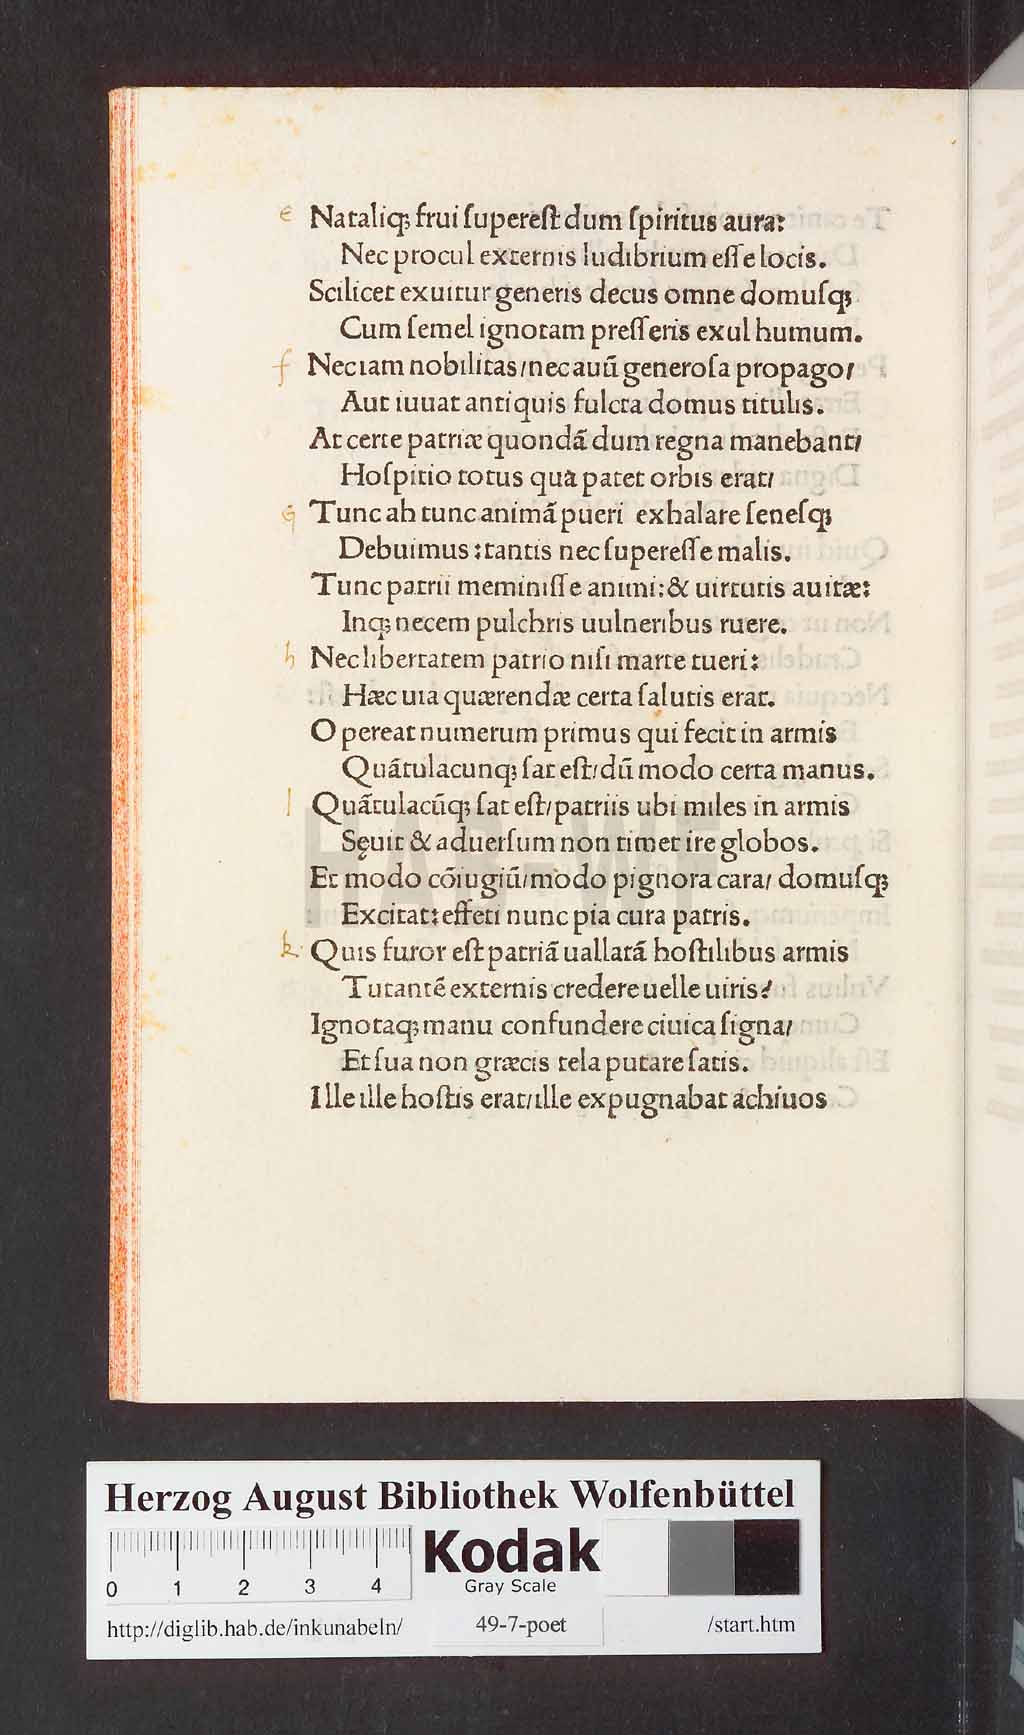 e Nataliq; frui ſupereſt dum ſpiritus aura:
Nec procul externis ludibrium eſſe locis.
Scilicet exuitur generis decus omne domuſq;
Cum ſemel ignotam preſſeris exul humum.
f Nec iam nobilitas/nec auū generoſa propago/
Aut iuuat antiquis fulcta domus titulis.
At certe patriæ quondā dum regna manebant/
Hoſpitio totus qua patet orbis erat/
g Tunc ah tunc animā pueri exhalare ſeneſq;
Debuimus: tantis nec ſupereſſe malis.
Tunc patrii meminiſſe animi: & uirtutis auitæ:
Inq; necem pulchris uulneribus ruere.
h Nec libertatem patrio niſi marte tueri:
Hæc uia quærendæ certa ſalutis erat.
O pereat numerum primus qui fecit in armis
Quātulacunq; ſat eſt/dū modo certa manus.
I Quātulacūq; ſat eſt/patriis ubi miles in armis
Sęuit & aduerſum non timet ire globos.
Et modo cōiugiū/modo pignora cara/ domuſq;
Excitat: effeti nunc pia cura patris.
k. Quis furor eſt patriā uallatā hoſtilibus armis
Tutantē externis credere uelle uiris?
Ignotaq; manu confundere ciuica ſigna/
Et ſua non græcis tela putare ſatis.
Ille ille hoſtis erat/ille expugnabat achiuos
HAB-WF
Herzog August Bibliothek Wolfenbüttel
0 1 2 3 4
Kodak
Gray Scale
http://diglib.hab.de/inkunabeln/ 49-7-poet /start.htm